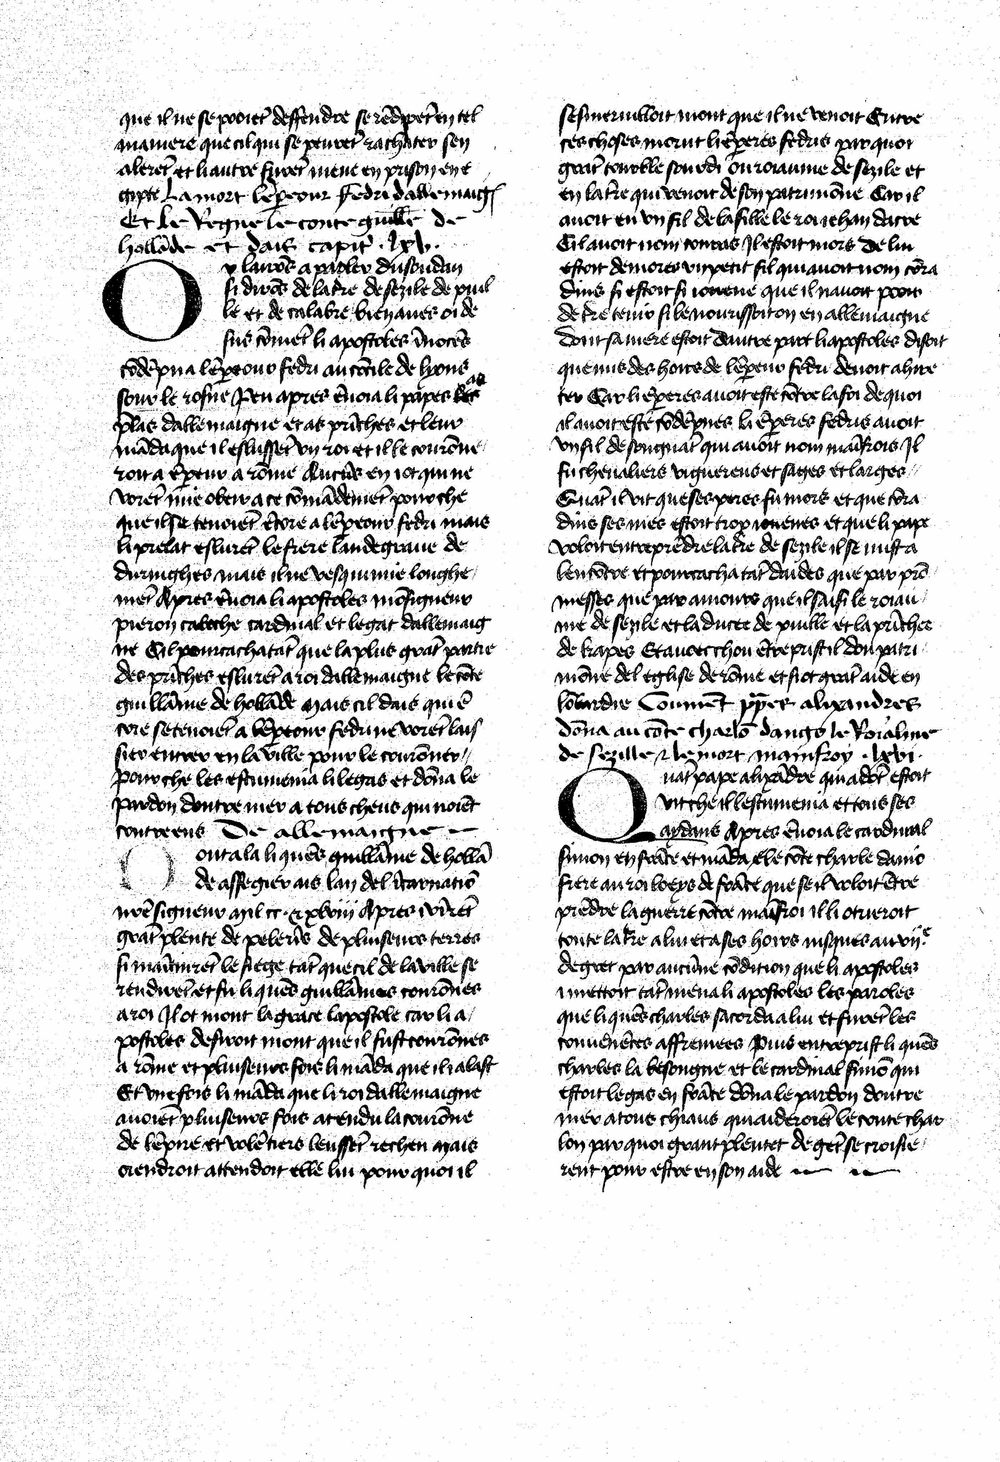 que il ne se pooiēt deffendre se rēdirēt en tel
maniere que cil qui se peurēt rachater sen
alerēt et li autre furēt mene en prison en e
gipte La mort lēpeour fedri dallemaig
Et le Regne le conte guille de
hollāde et dais capit . lxv .
O
r lairōs a parler du soudan
si dirōs de la tre de sezile de puil
le et de calabre bien aues oi de
sus cōmēt li apostoles inocēs
cōdēpna lēpeour fedri au cōcile de lyons
sour le rosne Peu apres ēuoia li papes as
plas dallemaigne et as prīches et leur
māda que il eslussēt vn roi et il le courōne
roit a ēpeur a rōme Aucūs en i ot qui ne
vorēt mie obeir a ce cōmādemēt pour che
que il se tenoiēt ēcore a lēpeour fedri mais
li prelat eslurēt le frere landegraue de
duringhes mais il ne vesqui mie longhe
mēt Apres ēuoia li apostoles mōsigneur
pieron cardinal et legat dallemaig
ne Cil pourcacha tāt que la plus grāt partie
des prīches eslurēt a roi dallemaigne le cōte
guillāme de hollāde Mais cil dais qui ē
core se tenoiēt a lēpeour fedri ne vorēt lais
sier entrer en la ville pour le courōner
Pour che les escumenia li legas et dōna le
pardon doutre mer a tous cheus qui iroiēt
contre eus De allemaigne
O
r en ala li quēs guillāme de hollā
de assegier ais lan del īcarnatiō
nrē signeur mil cc . & xlviij Apres i vīrēt
grāt plente de pelerīs de pluiseurs terres
si maītinrēt le siege tāt que cil de la ville se
rendirēt et fu li quēs guillāmes courōnes
a roi Il ot mont la grace lapostole car li a
postoles desiroit mont que il fust courōnes
a rōme et pluiseurs fois li māda que il i alast
Et vne fois li māda que li roi dallemaigne
auoiēt pluiseurs fois atendu la courōne
de lēpire et volētiers leussēt recheu Mais
orendroit attendoit elle lui pour quoi il
se smerueilloit mont que il ne venoit Entre
ces choses morut li ēperes fedris par quoi
grāt tourble sourdi ou roiaume de sezile et
en la tre qui venoit de son patrimōine Car il
auoit eu vn fil de la fille le roi iehan dacre
Cil auoit nom conras Il estoit mors De lui
estoit demores vn petit fil qui auoit nom cōra
dins si estoit si iouene que il nauoit pooir
de tre tenir si le nourissoit on en allemaigne
dont sa mere estoit Dautre part li apostoles disoit
que nus des hoirs de lēpeur fedri deuoit ahire
ter Car li ēperes auoit este cōtre la foi de quoi
il auoit este cōdēpnes li ēperes fedris auoit
vn fil de sougnāt qui auoit nom maīfrois Il
fu cheualiers viguereus et sages et larges
Quāt il vit que ses peres fu mors et que cōra
dins ses nies estoit trop iouenes et que li pape
voloit entreprēdre la tre de sezile il se mist a
len cōtre et pourcacha tāt daides que par prō
messes que par amours que il saisi le roiau
me de sezile et la ducee de puille et la prīchee
de kapes Et auoec chou ētreprist il dou patri
mōne del eglise de rōme et si ot grāt aide en
lōbardie Commēt ppes alixandres
dōna au cōte charlō dango le Roialme
de sezille & le mort mainfroy . lxvi .
Q
uāt pape alixādre qui adōt estoit
vit che il lescumenia et tous ses
aydans Apres ēuoia le cardinal
simon en frāce et māda le cōte charle daniō
frere au roi loeys de frāce que se il voloit ētre
prēdre la guerre cōtre maīfroi il li otrieroit
toute la tre a lui et a ses hoirs iusques au vijᵉ
degret par aucūne cōdition que li apostoles
i mettoit tāt mena li apostoles les paroles
que li quēs charles sacorda a lui et furēt les
conuenētes affremees Puis entreprist li quēs
charles la besongne et le cardinal simō qui
estoit legas en frāce dōna le pardon doutre
mer a tous chiaus qui aideroiēt le conte char
lon par quoi grant plentet de gēt se croisie
rent pour estre en son aide